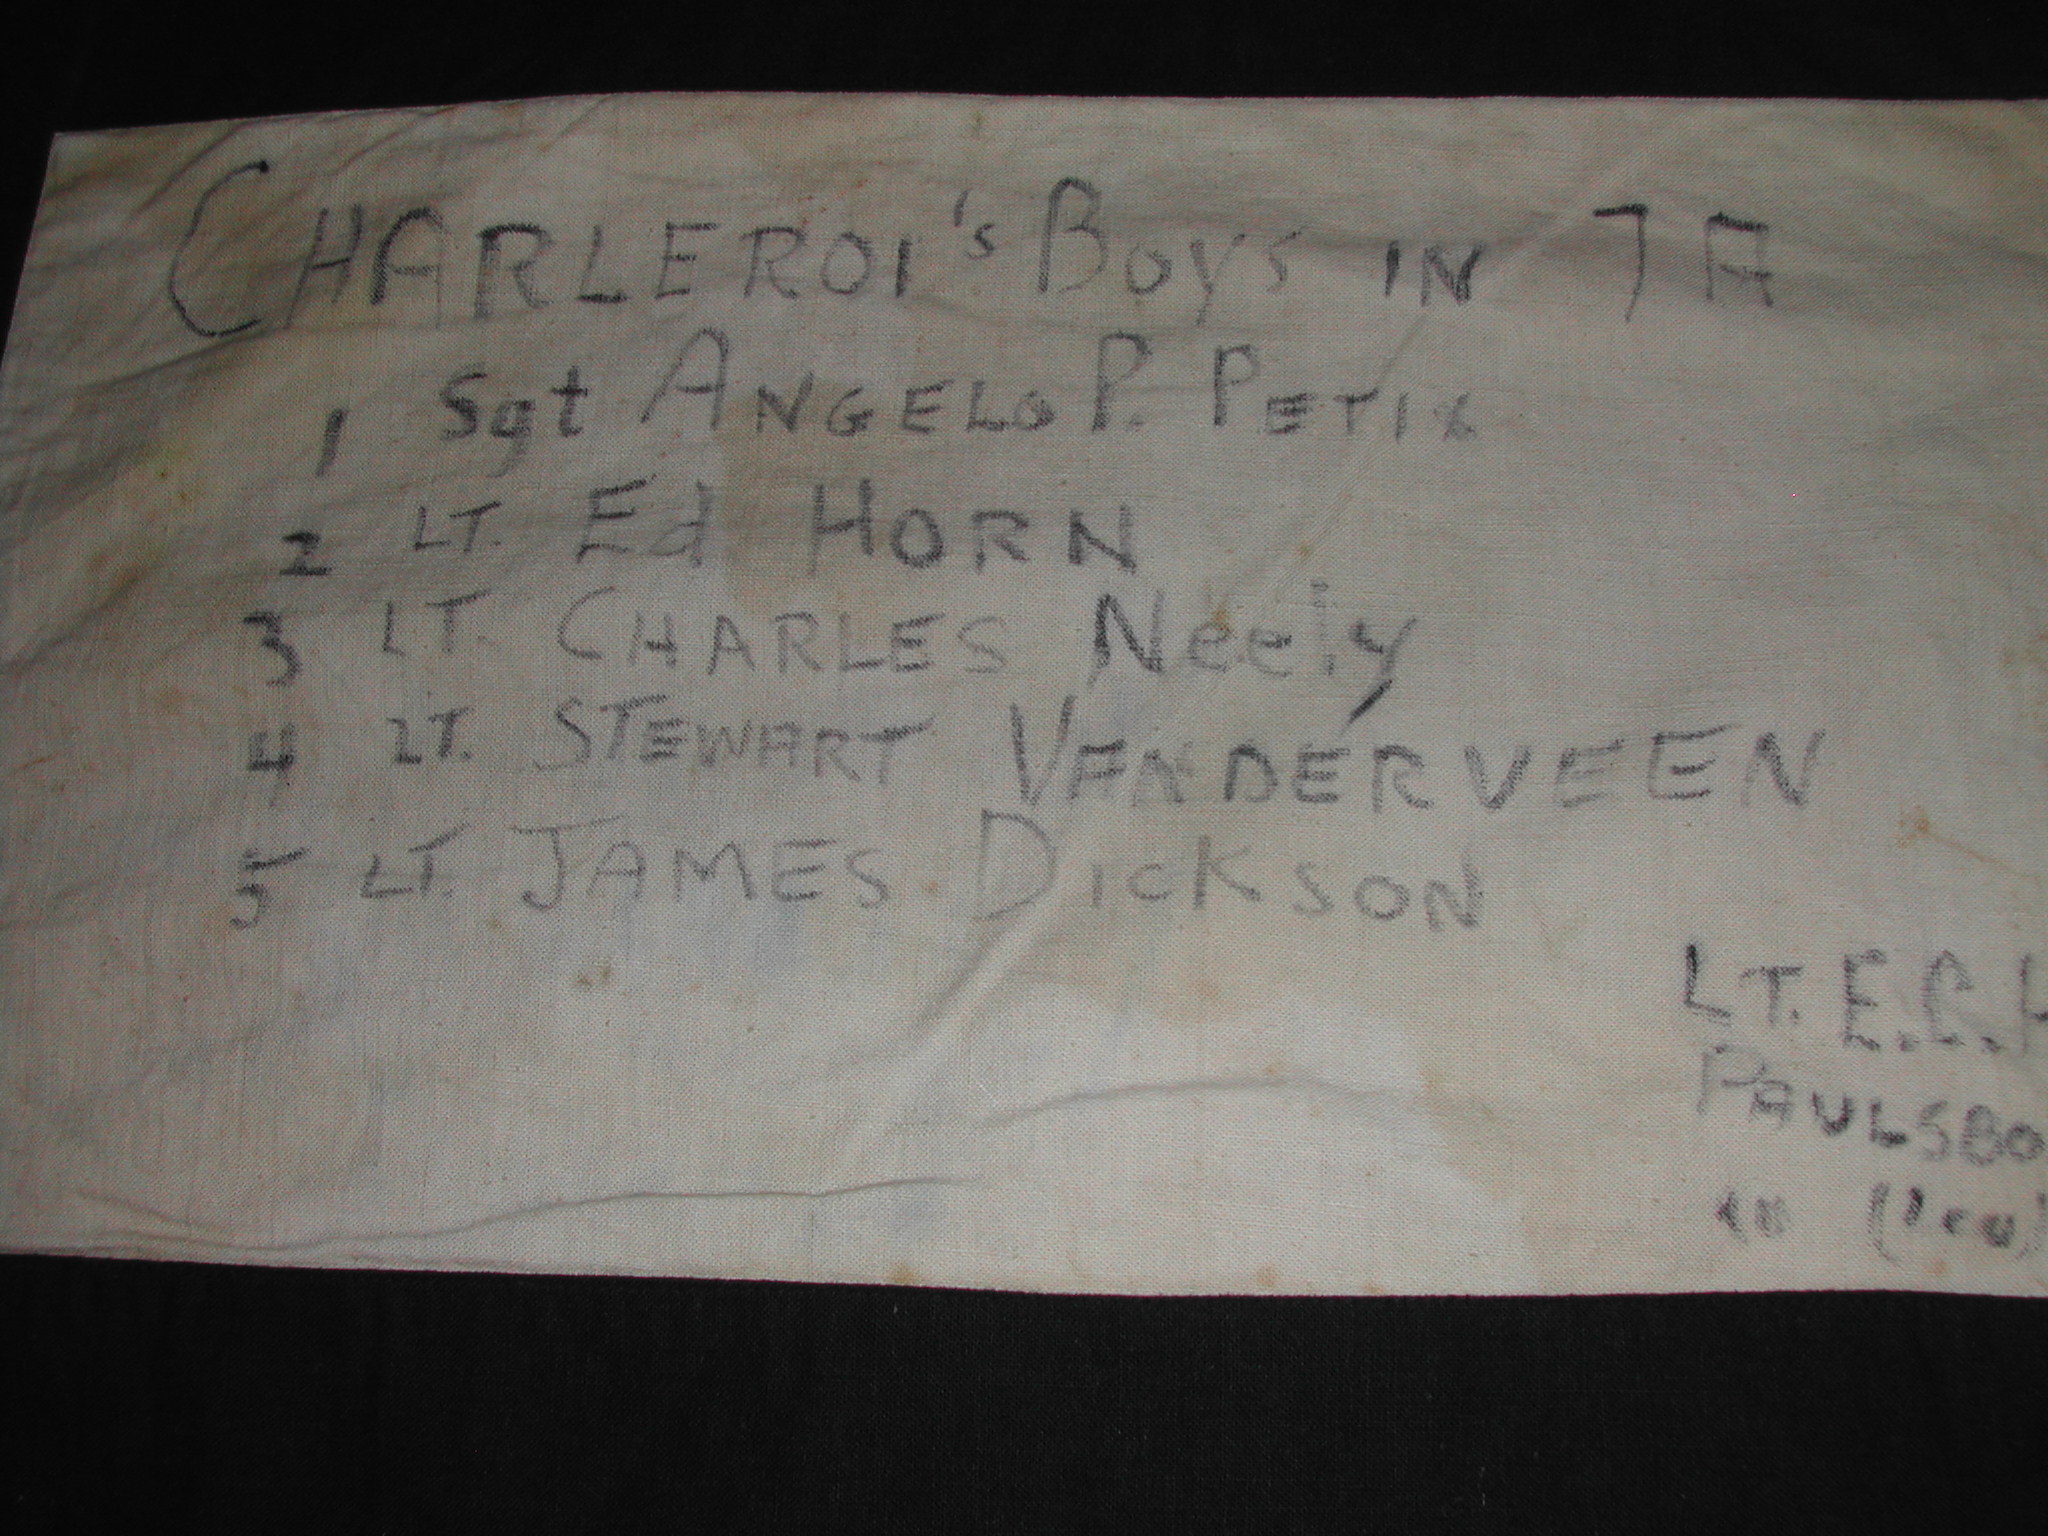 CHARLEROI's BOYS IN 7A
1 Sgt ANGELO P. PETIX
2 LT. Ed HORN
3 LT. CHARLES Neely
4 LT. STEWART VANDERVEEN
5 LT. JAMES DICKSON
LT. E.C. H
PAULSBO